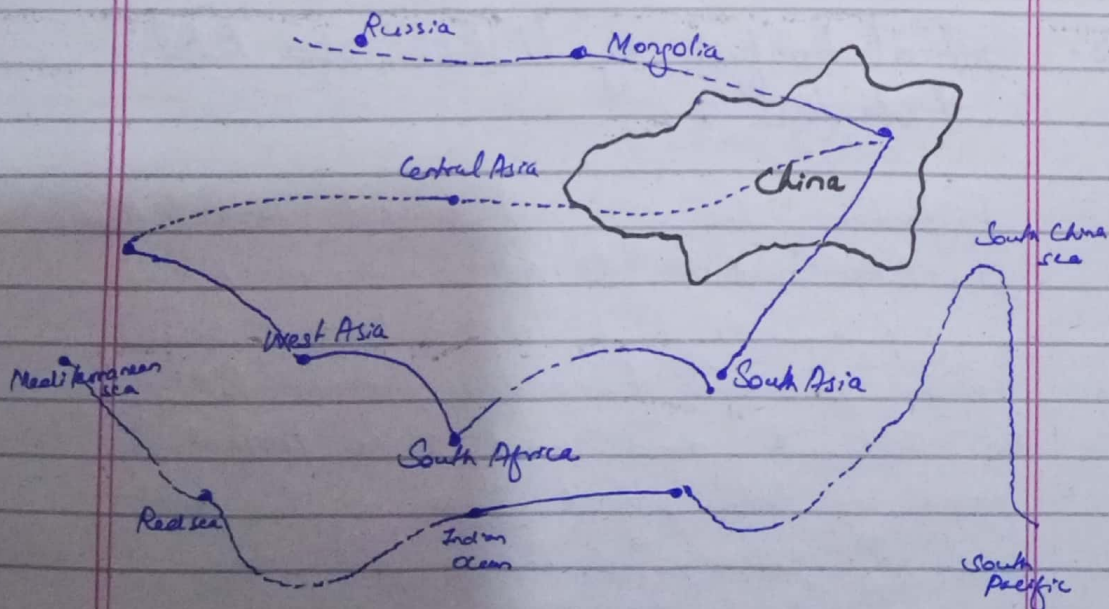 Russia
Mongolia
Central Asia
China
South China
sea
West Asia
Mediterranean
sea
South Asia
South Africa
Red sea
Indian
Ocean
South
Pacific